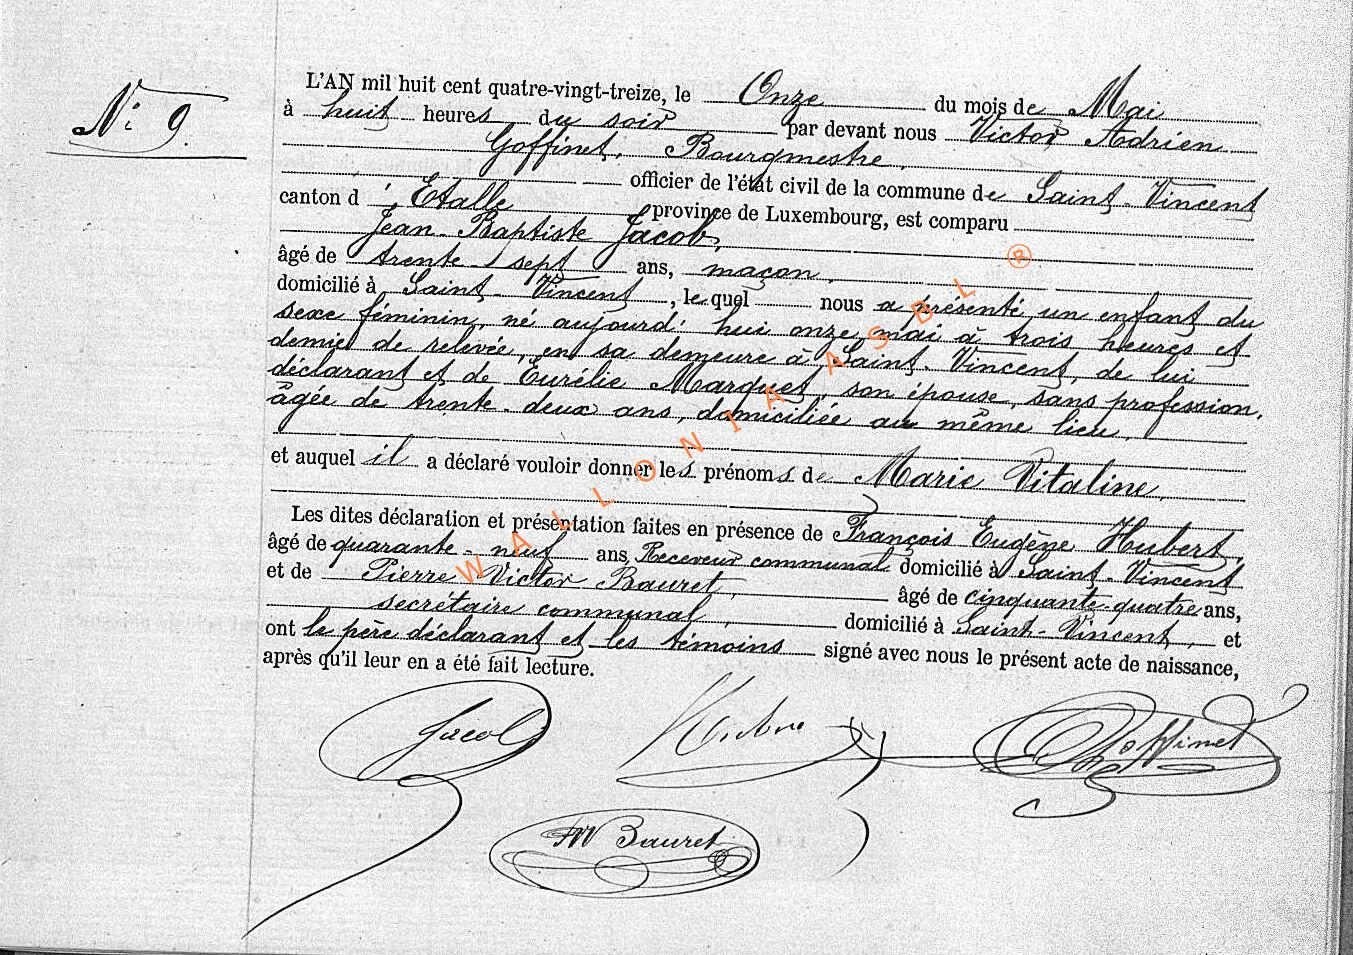 N° 9.
L'AN mil huit cent quatre-vingt-treize, le Onze du mois de Mai
à huit heures du soir par devant nous Victor Adrien
Goffinet, Bourgmestre,
officier de l'état civil de la commune de Saint-Vincent
canton d'Etalle province de Luxembourg, est comparu
Jean-Baptiste Jacob,
âgé de trente-sept ans, maçon,
domicilié à Saint-Vincent, lequel nous a présenté un enfant du
sexe féminin, né aujourd'hui onze mai à trois heures et
demie de relevée, en sa demeure à Saint-Vincent, de lui
déclarant et de Eurélie Marquet, son épouse, sans profession,
âgée de trente-deux ans, domiciliée au même lieu,
et auquel il a déclaré vouloir donner les prénoms de Marie Vitaline,
Les dites déclaration et présentation faites en présence de François Eugène Hubert,
âgé de quarante-neuf ans, Receveur communal domicilié à Saint-Vincent
et de Pierre Victor Bauret, âgé de cinquante quatre ans,
secrétaire communal, domicilié à Saint-Vincent, et
ont le père déclarant et les témoins signé avec nous le présent acte de naissance,
après qu'il leur en a été fait lecture.
Jacob Hubert Goffinet
Bauret
WALLONIA ASBL ®